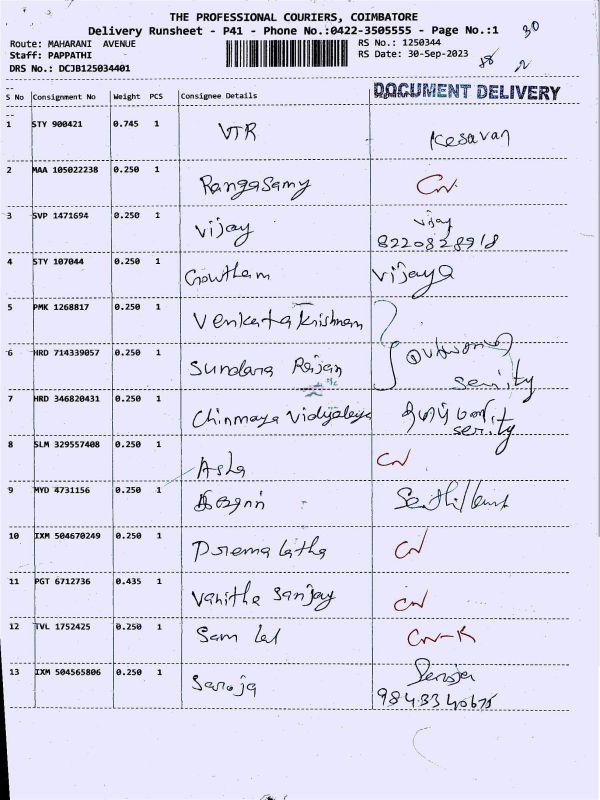 THE PROFESSIONAL COURIERS, COIMBATORE
Delivery Runsheet - P41 - Phone No.:0422-3505555 - Page No.:1
30
Route: MAHARANI AVENUE
RS No.: 1250344
Staff: PAPPATHI
RS Date: 30-Sep-2023
DRS No.: DCJB125034401
2
DOCUMENT DELIVERY
S No Consignment No Weight PCS Consignee Details
1 STY 900421 0.745 1 VTR Kesavan
2 MAA 105022238 0.250 1 Rangasamy CN
3 SVP 1471694 0.250 1 Vijay Vijay
8220828918
4 STY 107044 0.250 1 Gowtham Vijaya
5 PMK 1268817 0.250 1 Venkata Krishnan
6 HRD 714339057 0.250 1 Sundara Rajan
serity
7 HRD 346820431 0.250 1 Chinmaya Vidyalaya
serity
8 SLM 329557408 0.250 1 Asha CN
9 MYD 4731156 0.250 1
10 IXM 504670249 0.250 1 Premalatha CN
11 PGT 6712736 0.435 1 Vanitha Sanjay CN
12 TVL 1752425 0.250 1 Sam Lal CN-K
13 IXM 504565806 0.250 1 Saroja Saroja
9843340675